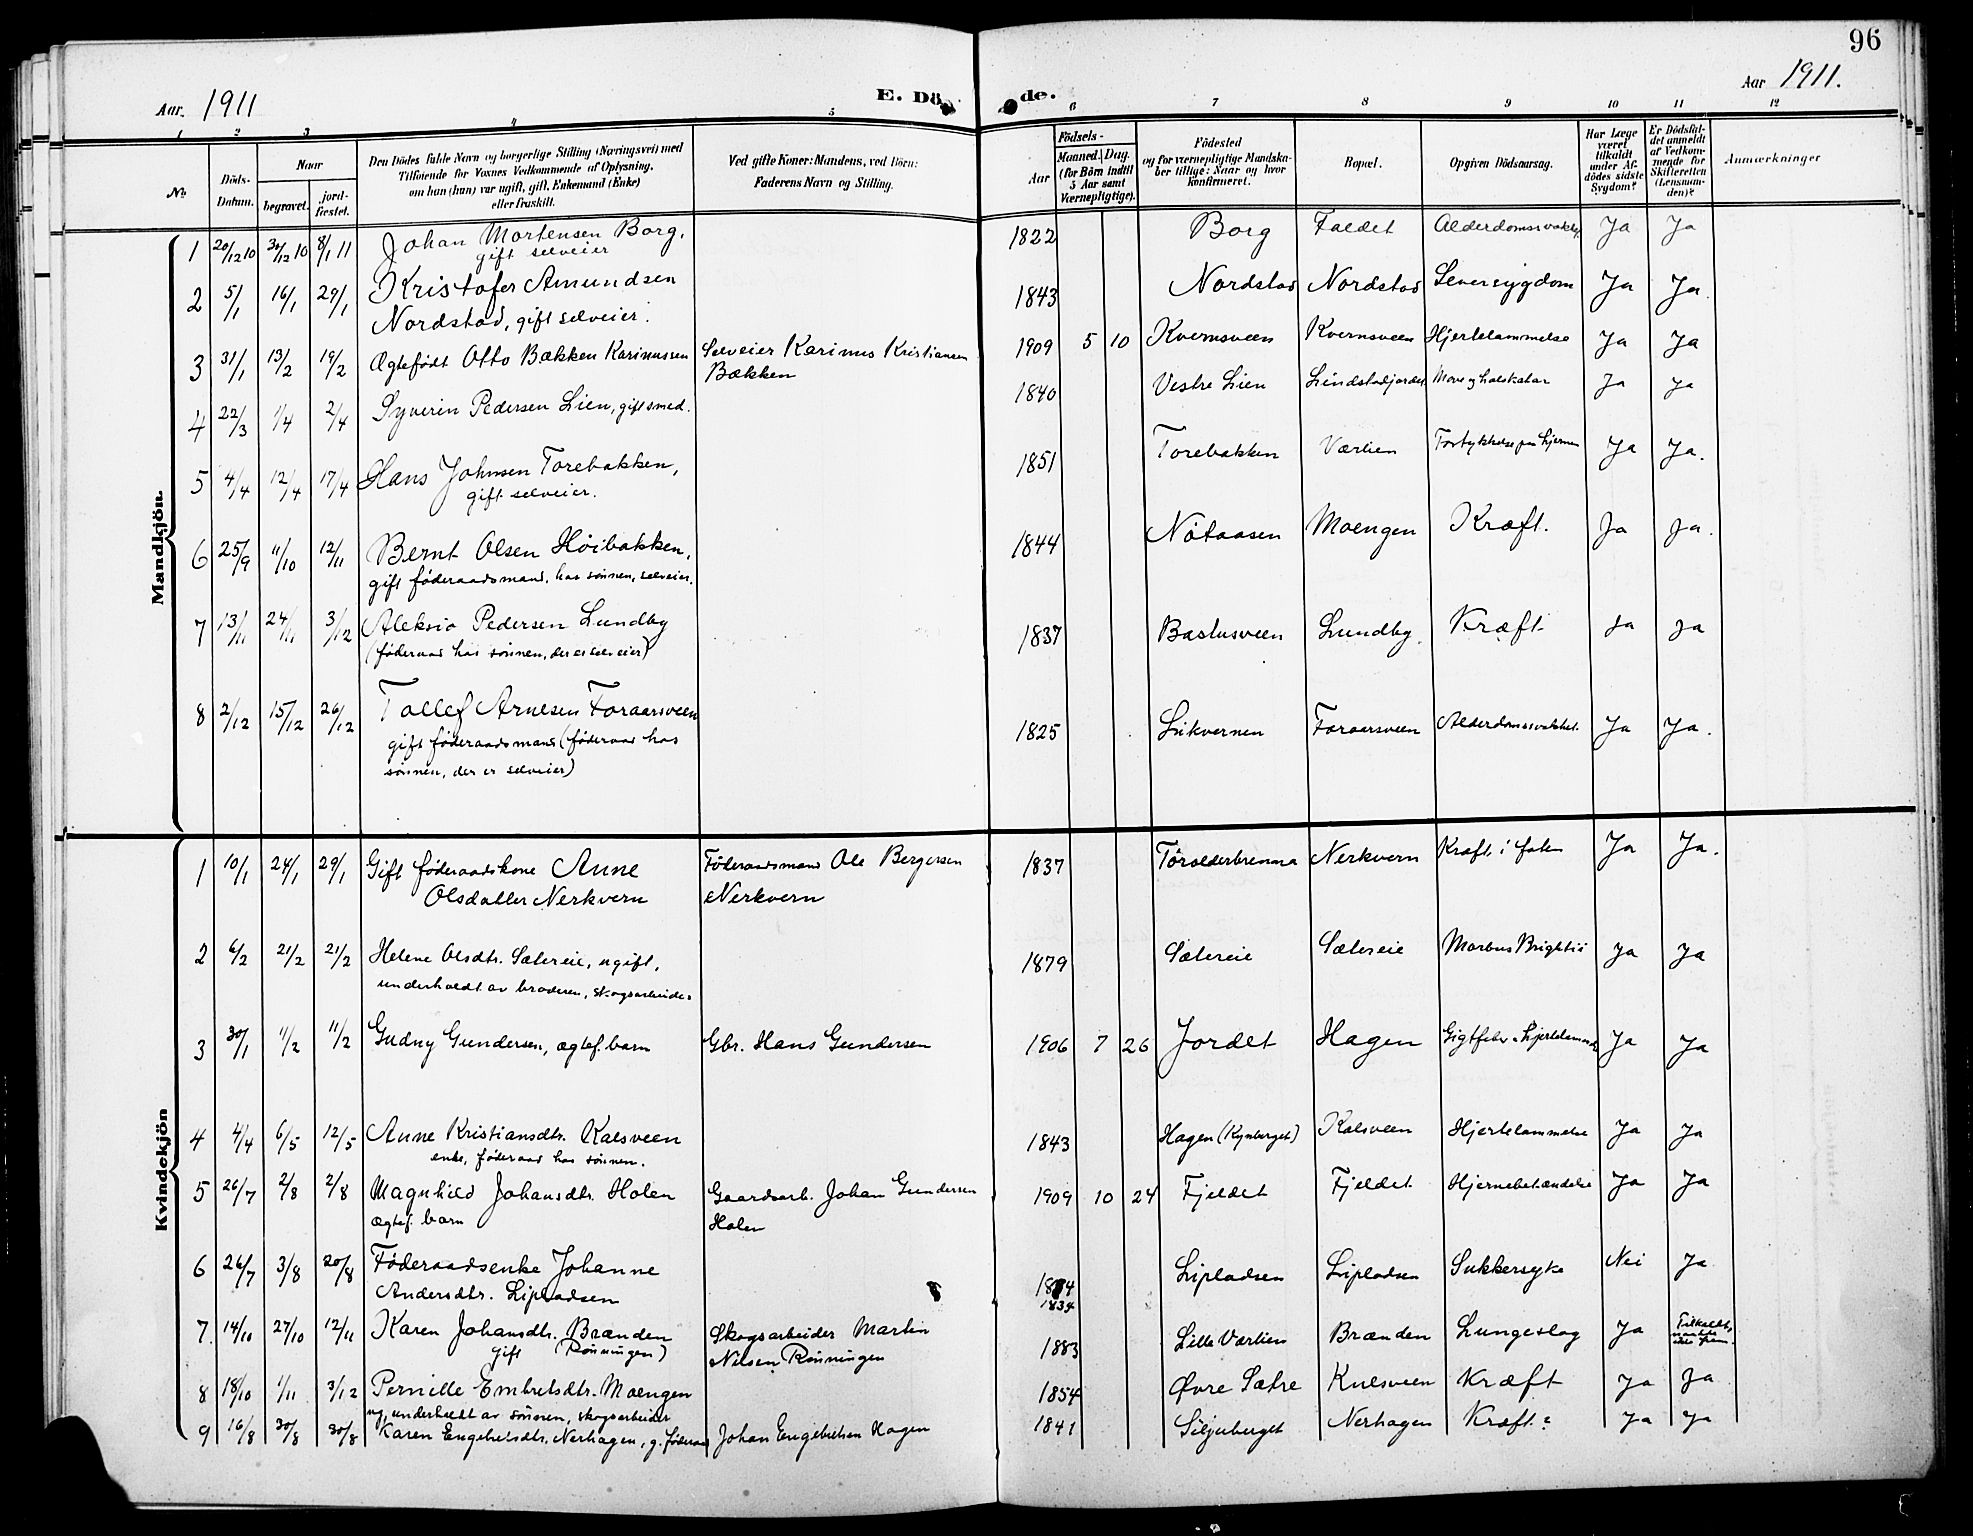 96
Aar. 1911
E. Dö de.
Aar 1911.
1 2 3 4 5 6 7 8 9 10 11 12
No.
Döds-Datum.
Naar
begravet.
jord-fæstet.
Den Dödes fulde Navn og borgerlige Stilling (Næringsvei) med
Tilföiende for Voxnes Vedkommende af Oplysning,
om han (hun) var ugift, gift, Enkemand (Enke)
eller fraskilt.
Ved gifte Koner: Mandens, ved Börn:
Faderens Navn og Stilling.
Aar
Födsels-
Maaned. Dag.
(for Börn indtil
5 Aar samt
Værnepligtige).
Födested
og for værnepligtige Mandska-
ber tillige: Naar og hvor
konfirmeret.
Bopæl.
Opgiven Dödsaarsag.
Har Læge
været
tilkaldt
under Af-
dödes sidste
Sygdom?
Er Dödsfal-
det anmeldt
af Vedkom-
mende for
Skifteretten
(Lensman-
den)?
Anmærkninger
Mandkjön.
1 20/12 10 30/12 10 8/1 11 Johan Mortensen Borg, 1822 Borg Faldet Ja Ja
gift selveier
2 5/1 16/1 29/1 Kristofer Amundsen 1843 Nordstad Nordstad Leversygdom Ja Ja.
Nordstad, gift selveier.
3 31/1 13/2 19/2 Ægtefödt Otto Bækken Karinussen Selveier Karinus Kristiansen 1909 5 10 Kvernsveen Kvernsveen Hjertelammelse Ja Ja
Bækken
4 22/3 1/4 2/4 Syverin Pedersen Lien, gift smed. 1840 Vestre Lien Lindstadjordet Ja Ja
5 4/4 12/4 17/4 Hans Johnsen Torebakken, 1851 Torebakken Værlien Ja Ja.
gift selveier.
6 25/9 11/10 12/11 Bernt Olsen Höibakken, 1844 Nötaasen Moengen Kræft. Ja Ja.
gift föderaadsmand, hos sönnen, selveier.
7 13/11 24/11 3/12 Aleksio Pedersen Lundby 1837 Bastusveen Lundby Kræft Ja Ja
(föderaad hos sönnen, der er selveier)
8 2/12 15/12 26/12 Tollef Arnesen Foraarsveen 1825 Likvernen Foraarsveen Alderdomssvakhet. Ja Ja.
gift föderaadsmand (föderaad hos
sönnen, der er selveier)
Kvindekjön
1 10/1 24/1 29/1 Gift föderaadskone Anne Föderaadsmand Ole Bergersen 1837 Nerkvern Ja Ja.
Olsdatter Nerkvern Nerkvern
2 6/2 21/2 21/2 Helene Olsdtr. Sætereie, ugift, 1879 Sætereie Sætereie Morbus Brightii Ja Ja
underholdt av broderen, skogsarbeider
3 30/1 11/2 11/2 Gudny Gundersen, ægtef. barn Gbr. Hans Gundersen 1906 7 26 Jordet Hagen Ja Ja
4 4/4 6/5 12/5 Anne Kristiansdtr. Kalsveen 1843 Hagen (Kynberget) Kalsveen Hjertelammelse Ja Ja
enke, föderaad hos sönnen.
5 26/7 2/8 2/8 Magnhild Johansdtr. Holen Gaardsarb. Johan Gundersen 1909 10 24 Fjeldet Fjeldet Hjernebetændelse Ja Ja
ægtef. barn Holen
6 26/7 3/8 20/8 Föderaadsenke Johanne Lipladsen Lipladsen Sukkersyke Nei Ja
Andersdtr. Lipladsen 1834
7. 14/10 27/10 12/11 Karen Johansdtr. Brænden Skogsarbeider Martin 1883 Lille Værlien Brænden Lungeslag Ja
gift (Rönningen) Nilsen Rönningen
8 18/10 1/11 3/12 Pernille Embretsdtr. Moengen 1854 Øvre Sætre Kulsveen Kræft Ja Ja
ug. underholdt av sönnen, skogsarbeider
9 16/8 30/8 30/8 Karen Engebretsdtr. Nerhagen, g. föderaad Johan Engebretsen Hagen 1841 Siljuberget Nerhagen Kræft? Ja Ja